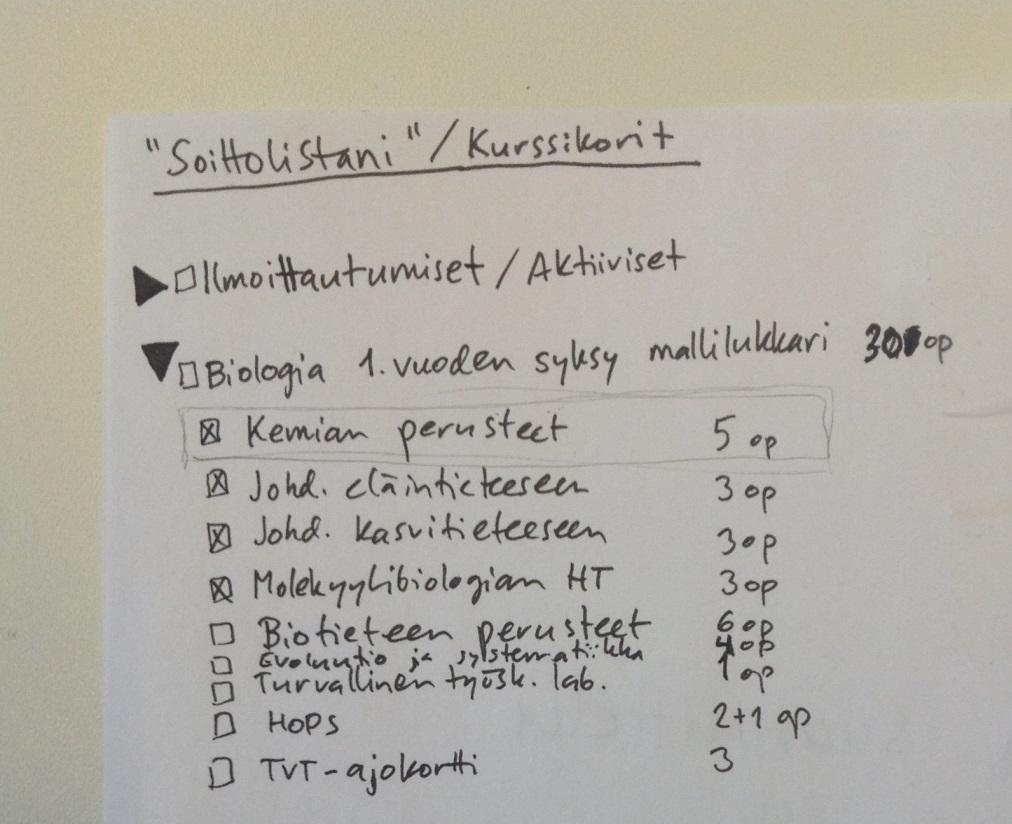 "Soittolistani" / Kurssikorit
Ilmoittautumiset / Aktiiviset
Biologia 1. vuoden syksy mallilukkari 30 op
Kemian perusteet 5 op
Johd. eläintieteeseen 3 op
Johd. kasvitieteeseen 3 op
Molekyylibiologian HT 3 op
Biotieteen perusteet 6 op
Evoluutio ja systematiikka 4 op
Turvallinen työsk. lab. 1 op
HOPS 2+1 op
TVT-ajokortti 3